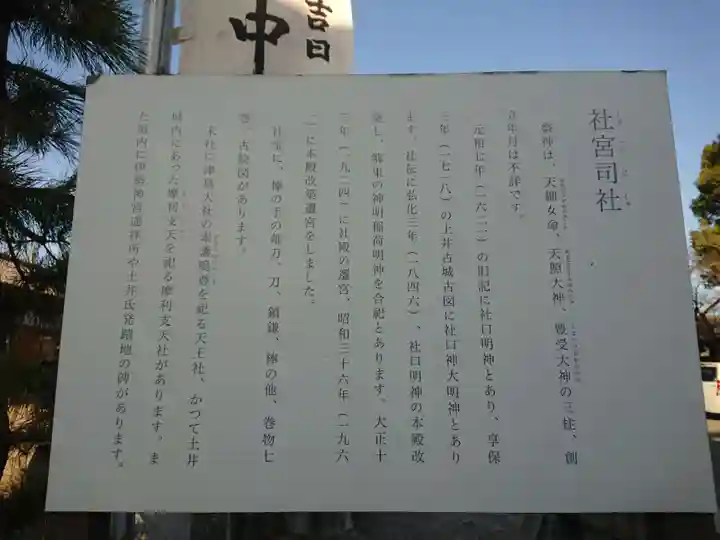 吉日
中
社宮司社
祭神は、天鈿女命、天照大神、豊受大神の三柱、創
立年月は不詳です。
元和七年（一六二一）の旧記に社口明神とあり、享保
三年（一七一八）の土井古城古図に社口神大明神とあり
ます。社伝に弘化三年（一八四六）、社口明神の本殿改
築し、鄰東の神明稲荷明神を合祀とあります。大正十
三年（一九二四）に社殿の遷宮、昭和三十六年（一九六
一）に本殿改築遷宮をしました。
社宝に、棒の手の薙刀、刀、鎖鎌、棒の他、巻物七
巻、古絵図があります。
末社に津島大社の素盞嗚尊を祀る天王社、かつて土井
城内にあった摩利支天を祀る摩利支天社があります。ま
た境内に伊勢神宮遥拝所や土井氏発蹟地の碑があります。